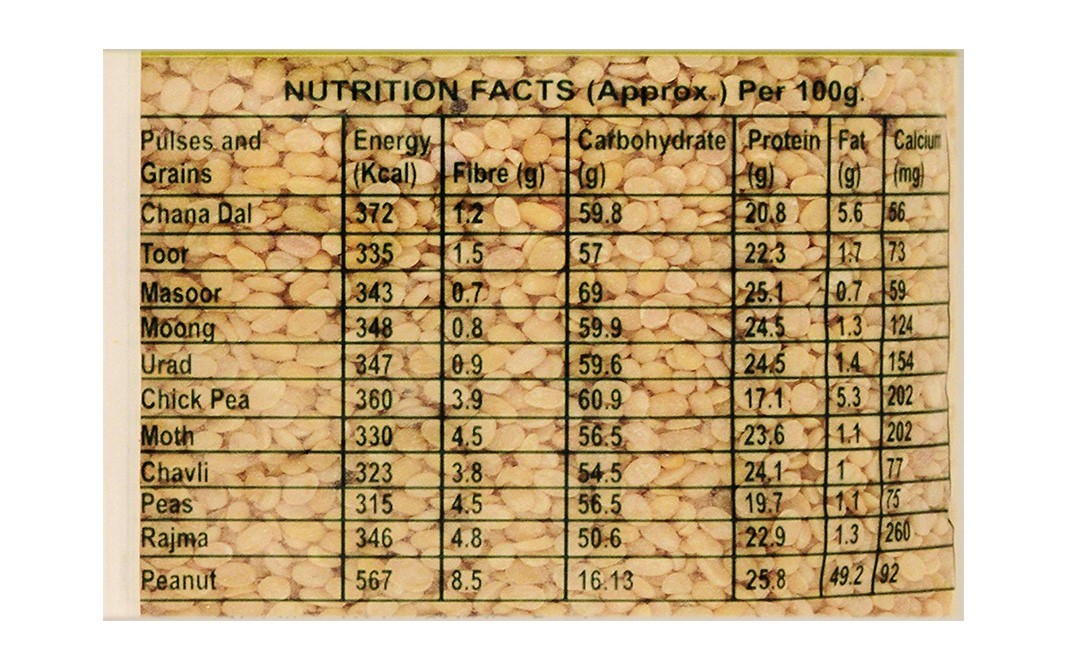 NUTRITION FACTS (Approx.) Per 100g.
Pulses and Grains Energy (Kcal) Fibre (g) Carbohydrate (g) Protein (g) Fat (g) Calcium (mg)
Chana Dal 372 1.2 59.8 20.8 5.6 56
Toor 335 1.5 57 22.3 1.7 73
Masoor 343 0.7 69 25.1 0.7 59
Moong 348 0.8 59.9 24.5 1.3 124
Urad 347 0.9 59.6 24.5 1.4 154
Chick Pea 360 3.9 60.9 17.1 5.3 202
Moth 330 4.5 56.5 23.6 1.1 202
Chavli 323 3.8 54.5 24.1 1 77
Peas 315 4.5 56.5 19.7 1.1 75
Rajma 346 4.8 50.6 22.9 1.3 260
Peanut 567 8.5 16.13 25.8 49.2 92